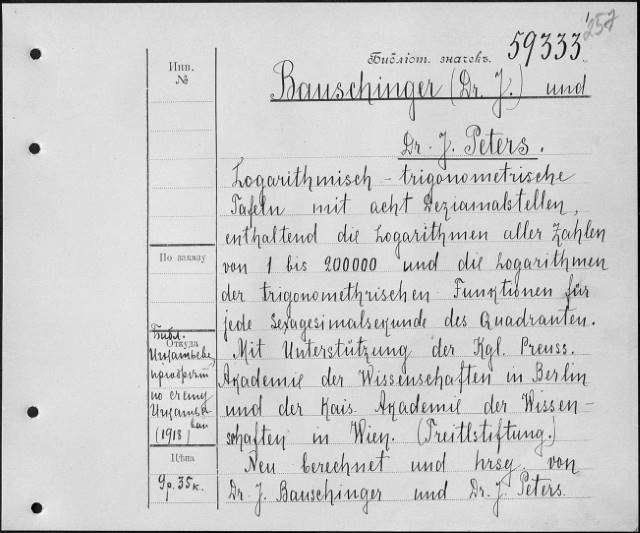 257
Библіот. значекъ. 59333
Инв.
№
Bauschinger (Dr. J.) und
Dr. J. Peters.
Logarithmisch - trigonometrische
Tafeln mit acht Deziamalstellen,
enthaltend die Logarithmen aller Zahlen
По заказу
von 1 bis 200000 und die Logarithmen
der trigonomethrischen Funktionen für
jede Sexagesimalsekunde des Quadranten.
Библ.
Откуда
Mit Unterstützung der Kgl. Preuss.
Akademie der Wissenschaften in Berlin
по счету
und der Kais. Akademie der Wissen-
(1918)
schaften in Wien. (Treitlstiftung.)
Цѣна
Neu berechnet und hrsg. von
9р. 35к.
Dr. J. Bauschinger und Dr. J. Peters.